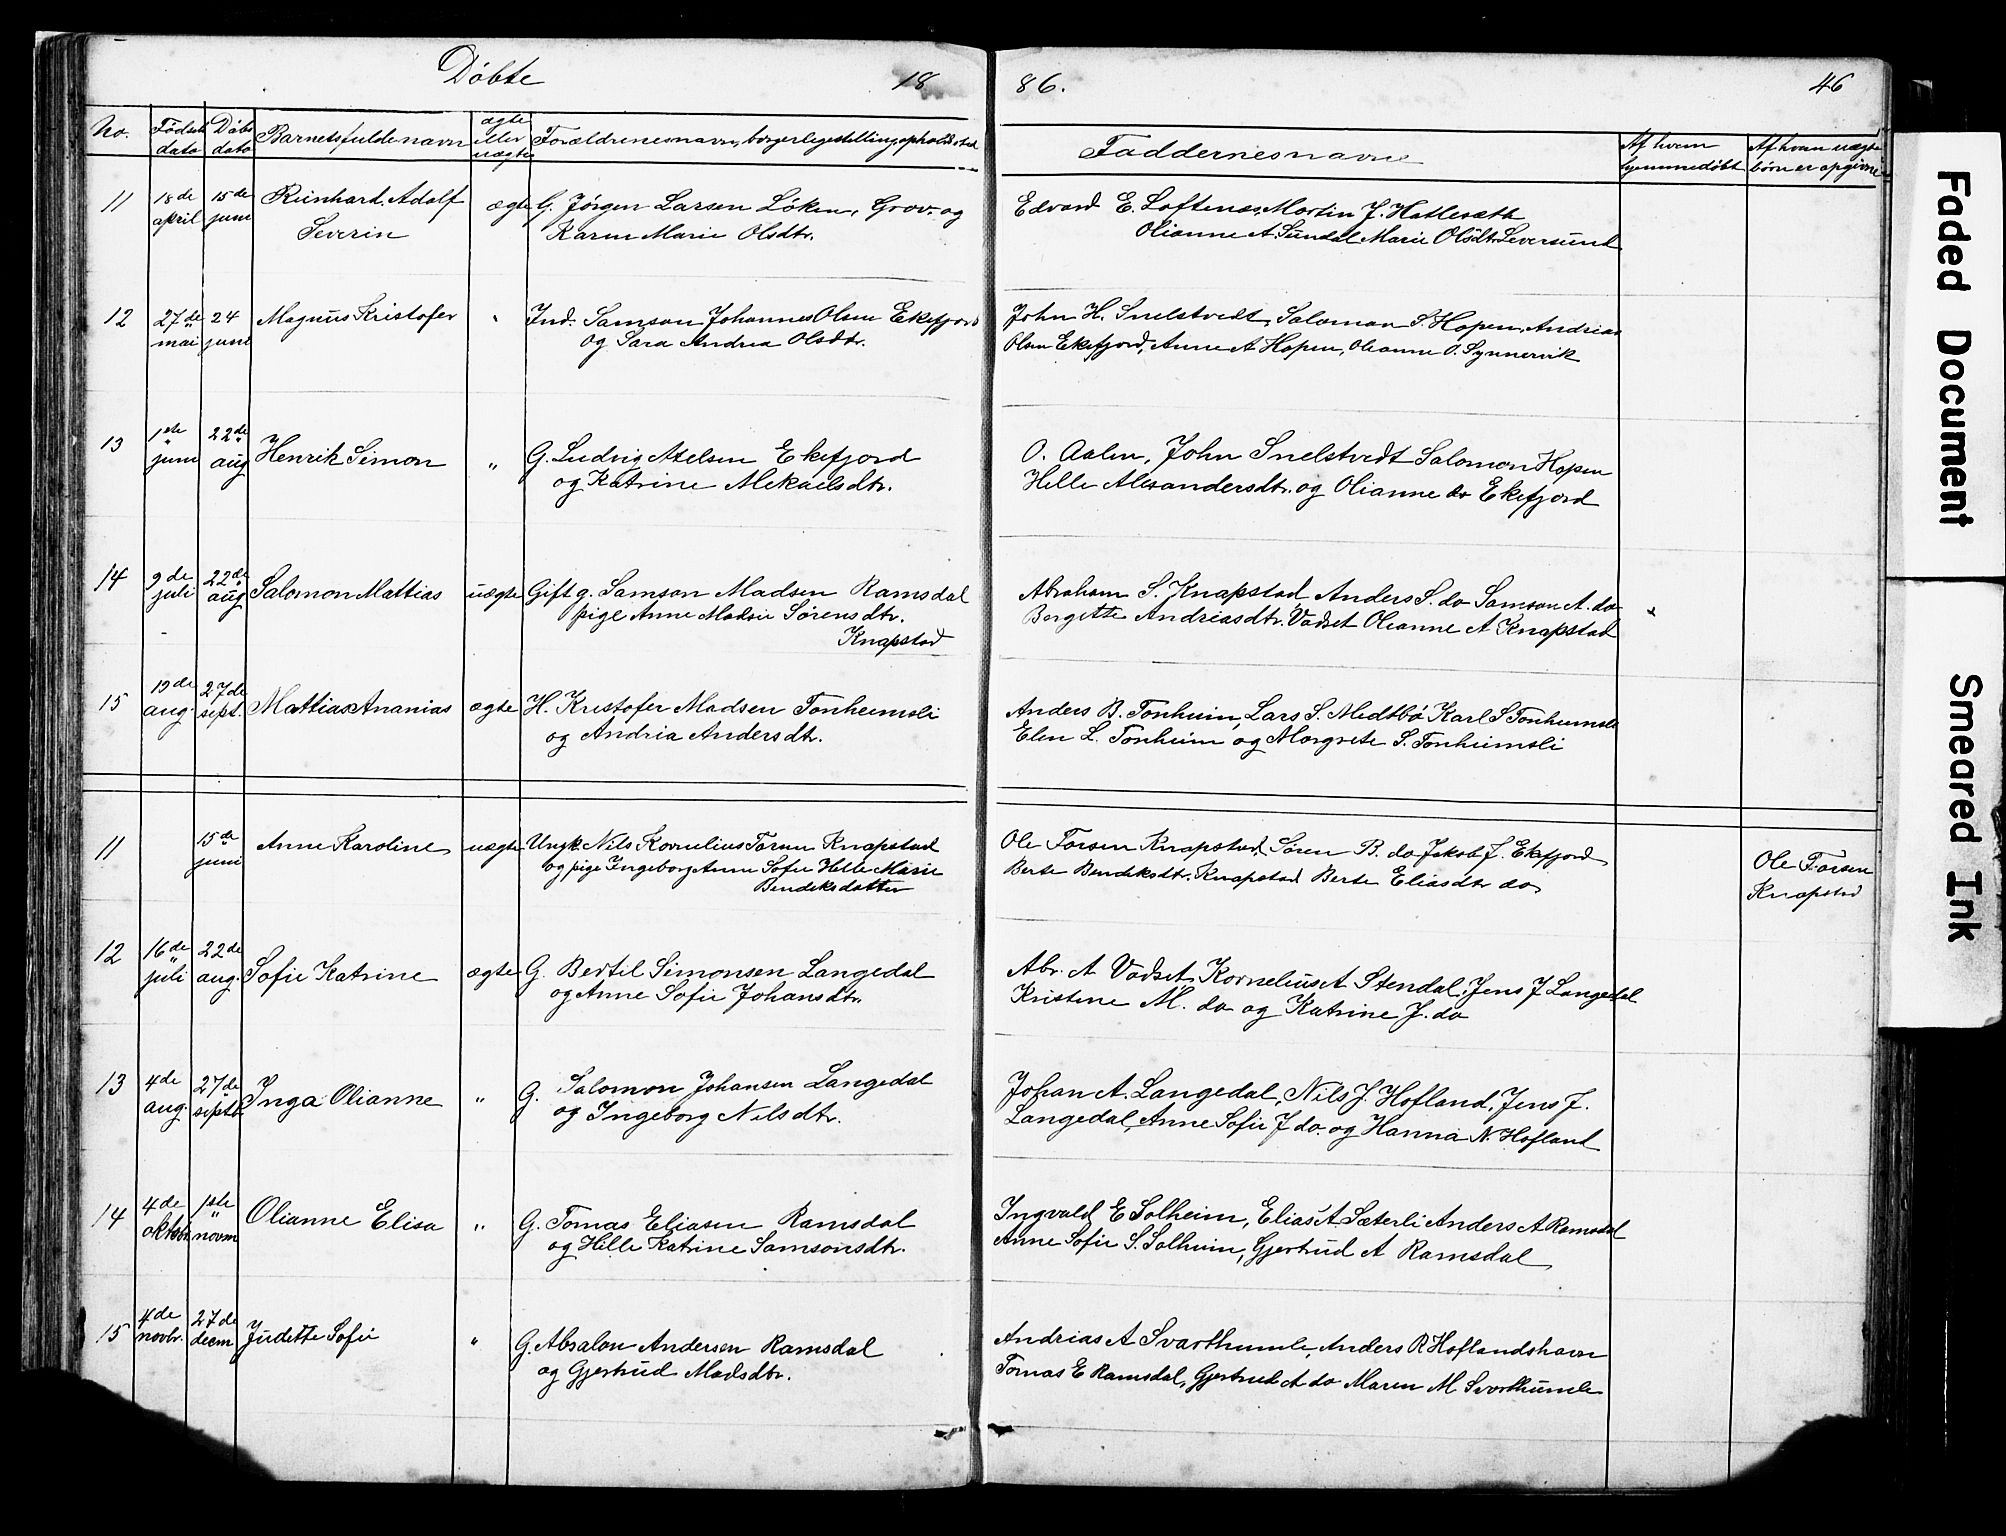 Døbte 18 86. 46
No. Fødsels dato Døbs dato Barnets fulde navn ægte eller uægte Forældrenes navn, borgerlige stilling, opholdssted Faddernes navne Af hvem hjemmedøbt Af hvem uægte børn er opgivne
11 18de april 15de juni Reinhart Adolf ægte G. Jørgen Larsen Løken, Grov. og Edvard E. Loftenes, Martin J. Hatleseth
Severin Karen Marie Olsdtr. Olianne A. Sundal Marie Olsdtr. Leversund
12 27de mai 24 juni Magnus Kristofer " Ind. Samson Johannes Olsen Ekefjord John H. Snelstvedt, Salomon S. Hopen, Andrias
og Sara Andrea Olsdtr. Olsen Ekefjord, Anne A Hopen, Olianne O. Synnervik
13 1ste juni 22de aug Henrik Simon " G. Ludvig Atelsen Ekefjord O. Aalen, John Snelstvedt Salomon Hopen
og Katrine Mekaelsdtr. Helle Alexandersdtr. og Olianne do Ekefjord
14 9de juli 22de aug Salomon Mattias uægte Gift g. Samson Madsen Ramsdal Abraham S. Knapstad, Anders S. do Samson A. do
pige Anne Marie Sørensdtr. Bergitte Andriasdtr. Vadset Olianne A Knapstad
Knapstad
15 19de aug. 27de sept. Mattias Ananias ægte H. Kristofer Madsen Tonheimsli Anders B. Tonheim, Lars S. Midtbø Karl S Tonheimsli
og Andria Andersdtr. Elen L. Tonheim og Margrete S. Tonheimsli
11 15de juni Anne Karoline uægte Ungk. Nils Kornelius Tørres Knapstad Ole Torsen Knapstad, Søren B. do Jakob J. Ekefjord Ole Torsen
og pige Ingeborg Anne Sofie Helle Marie Berte Bendeksdtr. Knapstad Berte Eliasdtr do Knapstad
Bendeksdatter
12 16de juli 22de aug. Sofie Katrine ægte G. Bertil Simonsen Langedal Abr. A Vadset, Kornelius A Stendal, Jens J Langedal
og Anne Sofie Johansdtr. Kristine M. do og Katrine J. do
13 4de aug. 27de septb. Inga Olianne " G. Salomon Johansen Langedal Johan A. Langedal, Nils J. Hofland, Jens J.
og Ingeborg Nilsdtr. Langedal, Anne Sofie J do. og Hanna N. Hofland
14 4de oktobr. 1ste novm Olianne Elisa " G. Tomas Eliasen Ramsdal Ingvald E Solheim, Elias A. Sæterli Anders A Ramsdal
og Hille Katrine Samsonsdtr. Anne Sofie S. Solheim, Gjertrud A Ramsdal
15 4de novbr. 27de decm Judette Sofie " G. Absalon Andersen Ramsdal Andrias A Svarthumle, Anders R Hoflandshavn
og Gjertrud Madsdtr. Tomas E Ramsdal, Gjertrud A do Maren M. Svarthumle
Faded Document
Smeared Ink